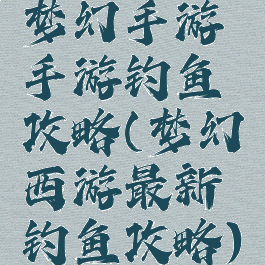 梦幻手游
手游钓鱼
攻略(梦幻
西游最新
钓鱼攻略)